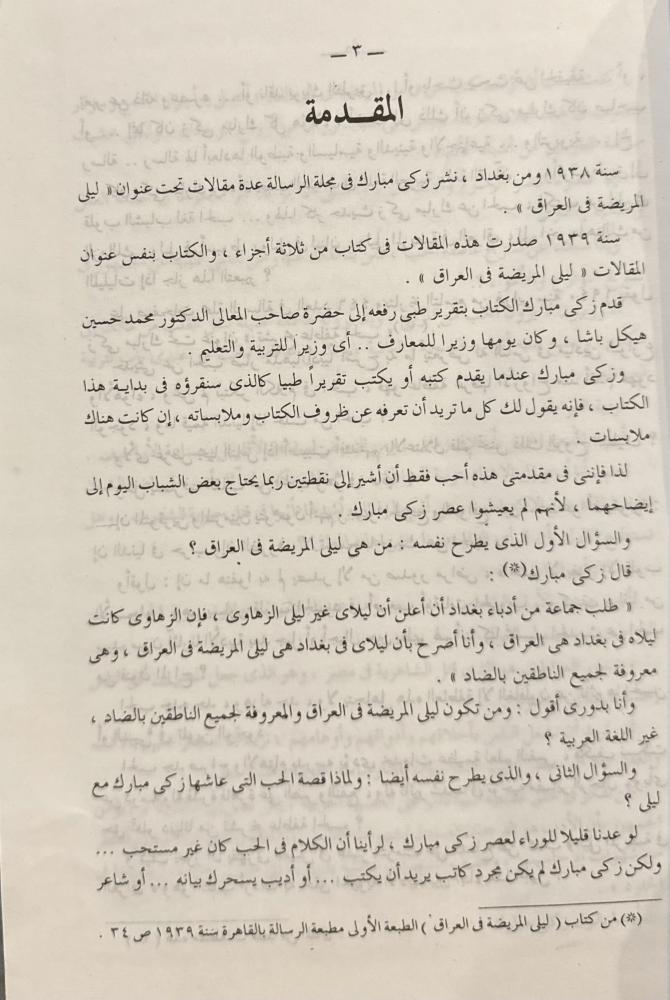 — ٣ —
المقـــدمة
سنة ١٩٣٨ ومن بغداد ، نشر زكى مبارك فى مجلة الرسالة عدة مقالات تحت عنوان « ليلى
المريضة فى العراق » .
سنة ١٩٣٩ صدرت هذه المقالات فى كتاب من ثلاثة أجزاء ، والكتاب بنفس عنوان
المقالات « ليلى المريضة فى العراق » .
قدم زكى مبارك الكتاب بتقرير طبى رفعه إلى حضرة صاحب المعالى الدكتور محمد حسين
هيكل باشا ، وكان يومها وزيرا للمعارف .. أى وزيرا للتربية والتعليم .
وزكى مبارك عندما يقدم كتبه أو يكتب تقريراً طبيا كالذى سنقرؤه فى بداية هذا
الكتاب ، فإنه يقول لك كل ما تريد أن تعرفه عن ظروف الكتاب وملابساته ، إن كانت هناك
ملابسات .
لذا فإننى فى مقدمتى هذه أحب فقط أن أشير إلى نقطتين ربما يحتاج بعض الشباب اليوم إلى
إيضاحهما ، لأنهم لم يعيشوا عصر زكى مبارك .
والسؤال الأول الذى يطرح نفسه : من هى ليلى المريضة فى العراق ؟
قال زكى مبارك(*) :
« طلب جماعة من أدباء بغداد أن أعلن أن ليلاى غير ليلى الزهاوى ، فإن الزهاوى كانت
ليلاه فى بغداد هى العراق ، وأنا أصرح بأن ليلاى فى بغداد هى ليلى المريضة فى العراق ، وهى
معروفة لجميع الناطقين بالضاد » .
وأنا بدورى أقول : ومن تكون ليلى المريضة فى العراق والمعروفة لجميع الناطقين بالضاد ،
غير اللغة العربية ؟
والسؤال الثانى ، والذى يطرح نفسه أيضا : ولماذا قصة الحب التى عاشها زكى مبارك مع
ليلى ؟
لو عدنا قليلا للوراء لعصر زكى مبارك ، لرأينا أن الكلام فى الحب كان غير مستحب ...
ولكن زكى مبارك لم يكن مجرد كاتب يريد أن يكتب ... أو أديب يسحرك بيانه ... أو شاعر
(*) من كتاب ( ليلى المريضة فى العراق ) الطبعة الأولى مطبعة الرسالة بالقاهرة سنة ١٩٣٩ ص ٣٤ .